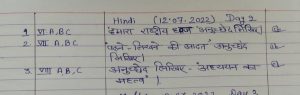 Hindi (12.07.2022) Day 2
1. VI A,B,C हमारा राष्ट्रीय ध्वज अनुच्छेद लिखिए।
2. VII A,B,C पढ़ने-लिखने की आदत अनुच्छेद
लिखिए।
3. VIII A,B,C अनुच्छेद लिखिए - अध्ययन का
महत्व।